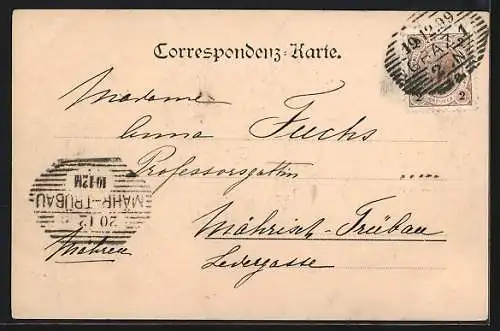 Correspondenz-Karte.
19.12.99
GRAZ 1
2
2
Madame
Anna Fuchs
Professorsgattin
Mährisch-Trübau
Ledergasse
Mähren
MÄHR-TRÜBAU
20 12
10-12M